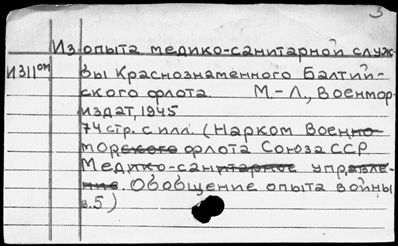 3
Из опыта медико-санитарной служ-
И311от бы Краснознаменного Балтий-
ского флота. М.-Л., Военмор-
издат, 1945
74 стр. с илл. (Нарком Военно-
морского флота Союза ССР
Медико-санитарное управле-
ние. Обобщение опыта войны
в.5)